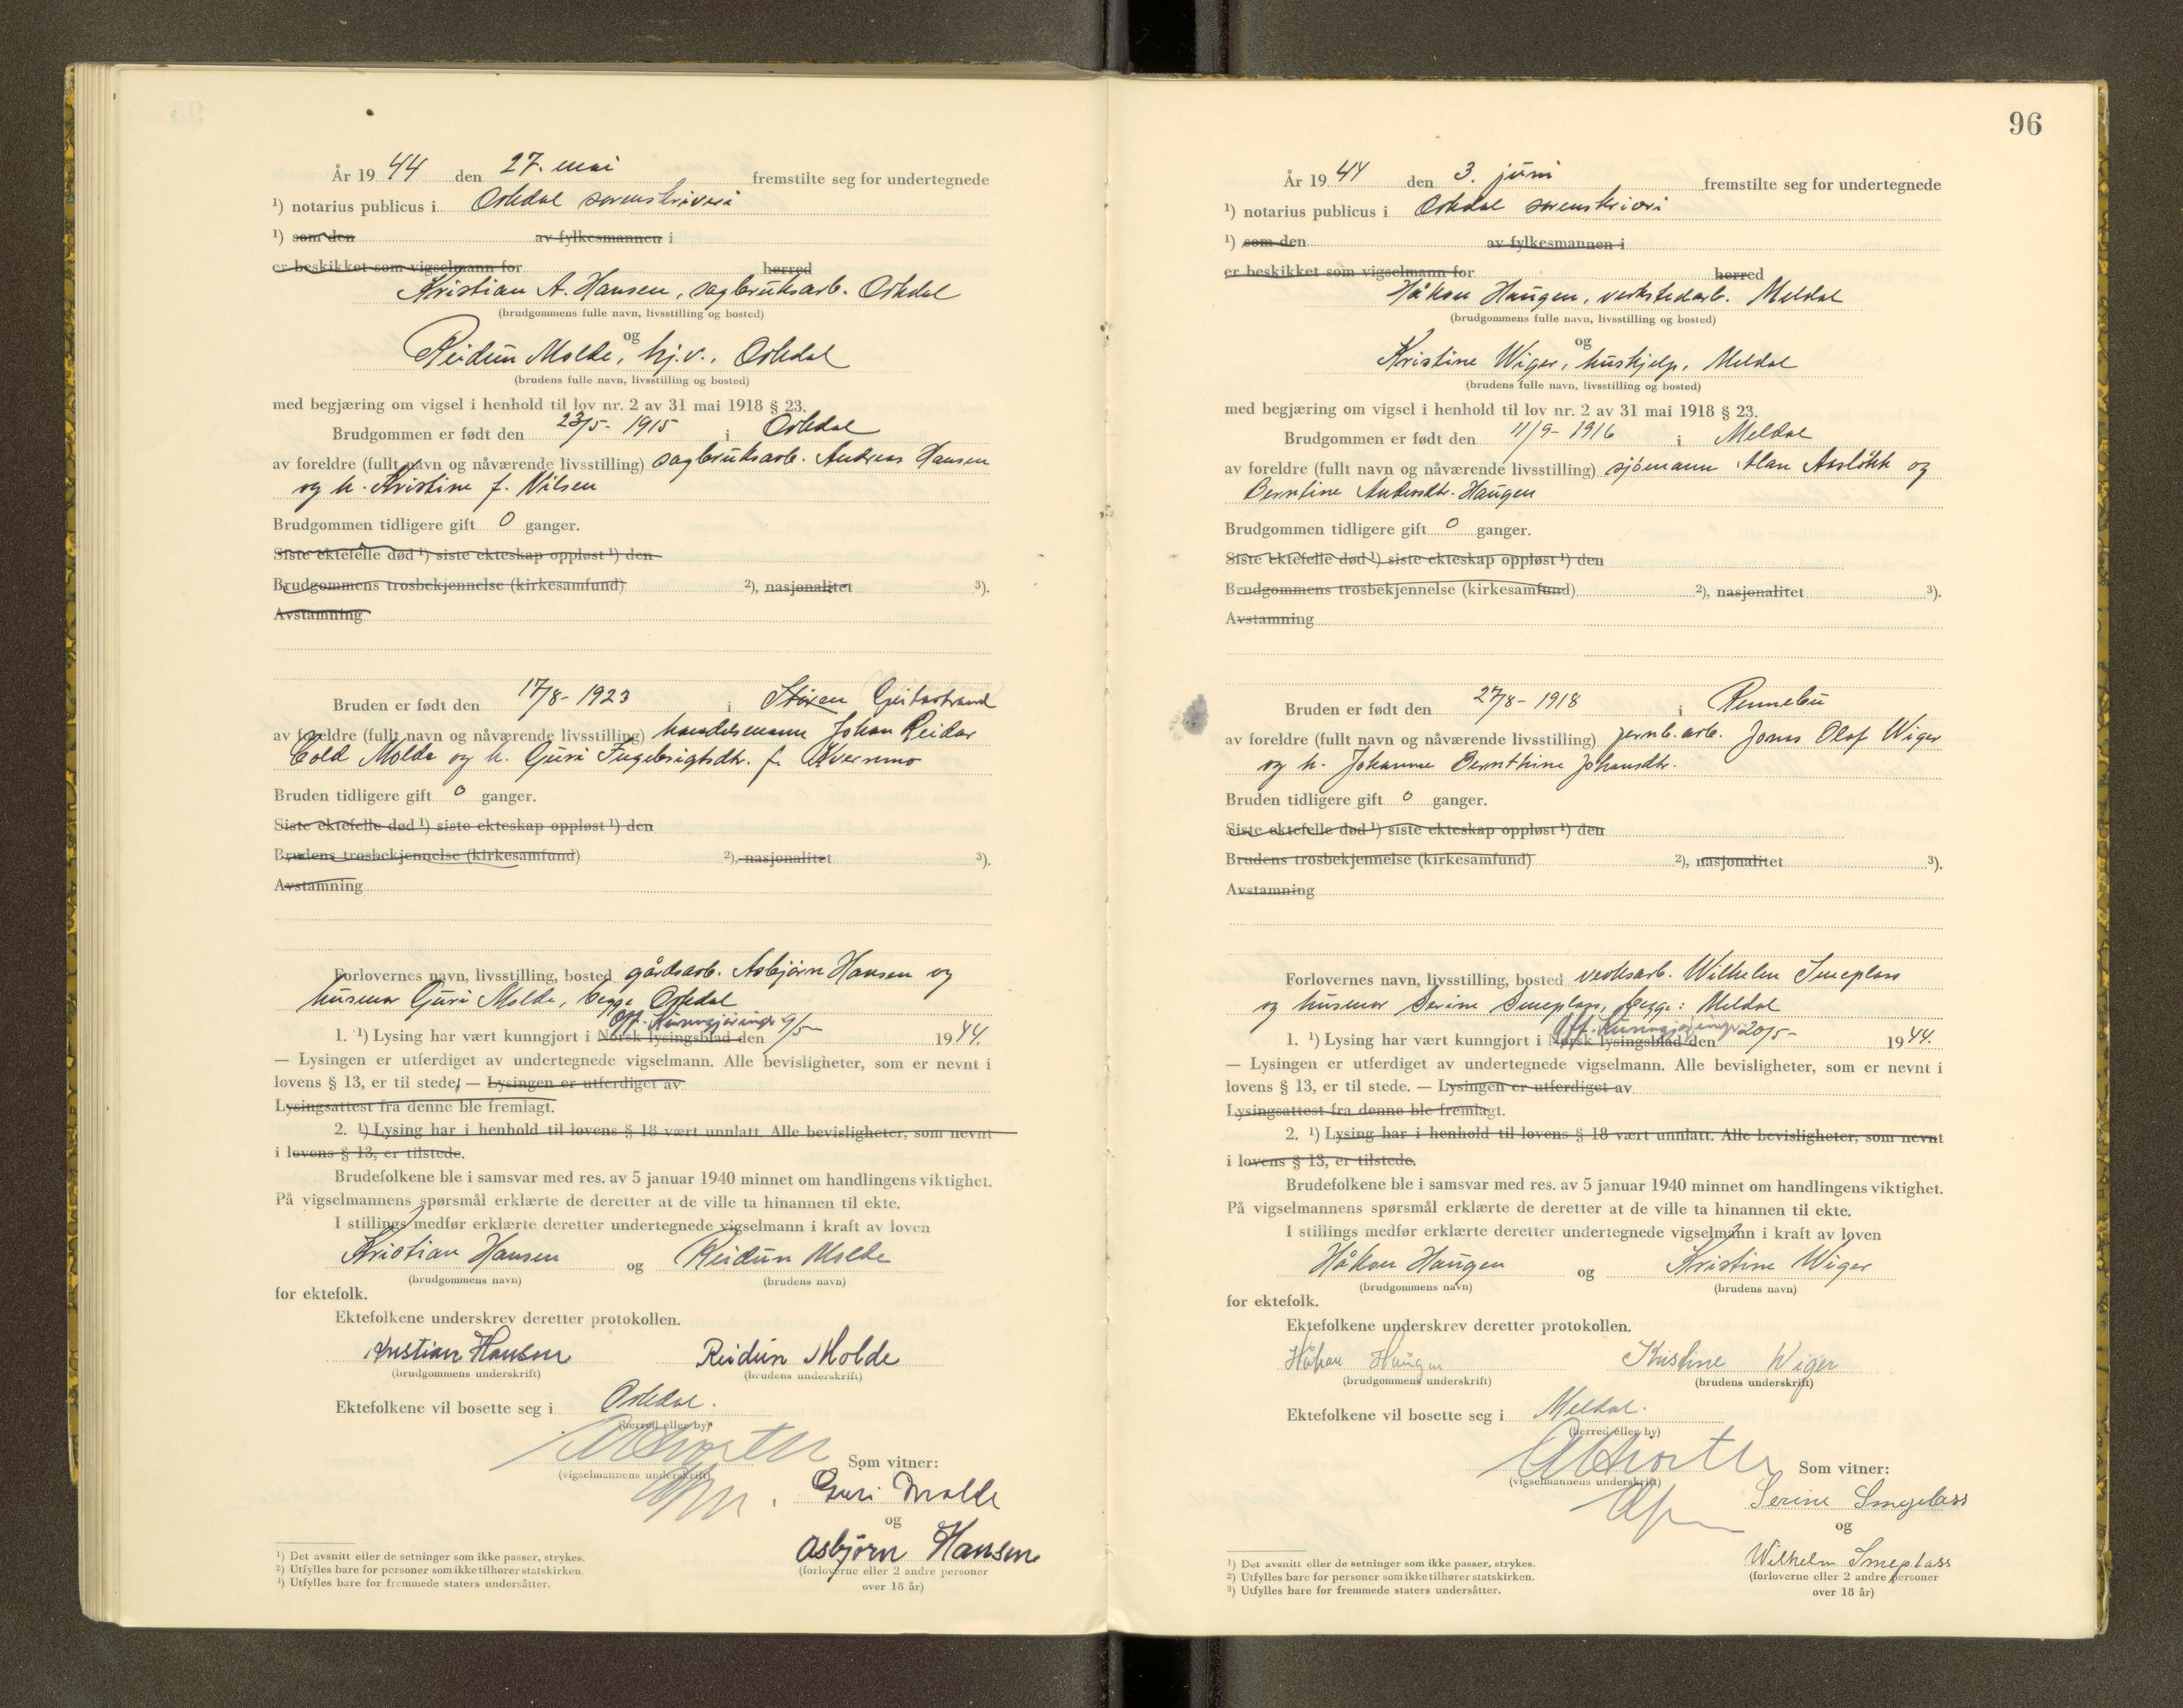 År 19 44 den 27. mai fremstilte seg for undertegnede
¹) notarius publicus i Orkdal sorenskriveri
¹) som den av fylkesmannen i
er beskikket som vigselmann for herred
Kristian A. Hansen, sagbruksarb. Orkdal
(brudgommens fulle navn, livsstilling og bosted)
og
Reidun Molde, hj.v., Orkdal
(brudens fulle navn, livsstilling og bosted)
med begjæring om vigsel i henhold til lov nr. 2 av 31 mai 1918 § 23.
Brudgommen er født den 23/5- 1915 i Orkdal
av foreldre (fullt navn og nåværende livsstilling) sagbruksarb. Andreas Hansen
og h. Kristine f. Nilsen
Brudgommen tidligere gift 0 ganger.
Siste ektefelle død ¹) siste ekteskap oppløst ¹) den
Brudgommens trosbekjennelse (kirkesamfund) ²), nasjonalitet ³).
Avstamning
Bruden er født den 17/8- 1923 i Støren Geitastrand
av foreldre (fullt navn og nåværende livsstilling) handelsmann Johan Reidar
Cold Molde og h. Guri Ingebrigtsdtr. f. Kvernmo
Bruden tidligere gift 0 ganger.
Siste ektefelle død ¹) siste ekteskap oppløst ¹) den
Brudens trosbekjennelse (kirkesamfund) ²), nasjonalitet ³).
Avstamning
Forlovernes navn, livsstilling, bosted gårdsarb. Asbjørn Hansen og
husmor Guri Molde, begge Orkdal
Off. Kunngjøringer 9/5-
1. ¹) Lysing har vært kunngjort i Norsk lysingsblad den 1944.
— Lysingen er utferdiget av undertegnede vigselmann. Alle bevisligheter, som er nevnt i
lovens § 13, er til stede, — Lysingen er utferdiget av
Lysingsattest fra denne ble fremlagt.
2. ¹) Lysing har i henhold til lovens § 18 vært unnlatt. Alle bevisligheter, som nevnt
i lovens § 13, er tilstede.
Brudefolkene ble i samsvar med res. av 5 januar 1940 minnet om handlingens viktighet.
På vigselmannens spørsmål erklærte de deretter at de ville ta hinannen til ekte.
I stillings medfør erklærte deretter undertegnede vigselmann i kraft av loven
Kristian Hansen og Reidun Molde
(brudgommens navn) (brudens navn)
for ektefolk.
Ektefolkene underskrev deretter protokollen.
Kristian Hansen Reidun Molde
(brudgommens underskrift) (brudens underskrift)
Ektefolkene vil bosette seg i Orkdal.
(herred eller by)
(vigselmannens underskrift)
Som vitner:
Guri Molde
og
Asbjørn Hansen
(forloverne eller 2 andre personer
over 18 år)
¹) Det avsnitt eller de setninger som ikke passer, strykes.
²) Utfylles bare for personer som ikke tilhører statskirken.
³) Utfylles bare for fremmede staters undersåtter.
96
År 19 44 den 3. juni fremstilte seg for undertegnede
¹) notarius publicus i Orkdal sorenskriveri
¹) som den av fylkesmannen i
er beskikket som vigselmann for herred
Håkon Haugen, verkstedarb. Meldal
(brudgommens fulle navn, livsstilling og bosted)
og
Kristine Wiger, hushjelp, Meldal
(brudens fulle navn, livsstilling og bosted)
med begjæring om vigsel i henhold til lov nr. 2 av 31 mai 1918 § 23.
Brudgommen er født den 11/9- 1916 i Meldal
av foreldre (fullt navn og nåværende livsstilling) sjømann og
Berntine Andersdtr. Haugen
Brudgommen tidligere gift 0 ganger.
Siste ektefelle død ¹) siste ekteskap oppløst ¹) den
Brudgommens trosbekjennelse (kirkesamfund) ²), nasjonalitet ³).
Avstamning
Bruden er født den 27/8- 1918 i Rennebu
av foreldre (fullt navn og nåværende livsstilling) jernb.arb. Jonas Olaf Wiger
og h. Johanne Bernthine Johansdtr.
Bruden tidligere gift 0 ganger.
Siste ektefelle død ¹) siste ekteskap oppløst ¹) den
Brudens trosbekjennelse (kirkesamfund) ²), nasjonalitet ³).
Avstamning
Forlovernes navn, livsstilling, bosted verksarb. Wilhelm Smeplass
og husmor Serine Smeplass, begge: Meldal
Off. Kunngjøringer 20/5-
1. ¹) Lysing har vært kunngjort i Norsk lysingsblad den 1944.
— Lysingen er utferdiget av undertegnede vigselmann. Alle bevisligheter, som er nevnt i
lovens § 13, er til stede. — Lysingen er utferdiget av
Lysingsattest fra denne ble fremlagt.
2. ¹) Lysing har i henhold til lovens § 18 vært unnlatt. Alle bevisligheter, som nevnt
i lovens § 13, er tilstede.
Brudefolkene ble i samsvar med res. av 5 januar 1940 minnet om handlingens viktighet.
På vigselmannens spørsmål erklærte de deretter at de ville ta hinannen til ekte.
I stillings medfør erklærte deretter undertegnede vigselmann i kraft av loven
Håkon Haugen og Kristine Wiger
(brudgommens navn) (brudens navn)
for ektefolk.
Ektefolkene underskrev deretter protokollen.
Håkon Haugen Kristine Wiger
(brudgommens underskrift) (brudens underskrift)
Ektefolkene vil bosette seg i Meldal.
(herred eller by)
(vigselmannens underskrift)
Som vitner:
Serine Smeplass
og
Wilhelm Smeplass
(forloverne eller 2 andre personer
over 18 år)
¹) Det avsnitt eller de setninger som ikke passer, strykes.
²) Utfylles bare for personer som ikke tilhører statskirken.
³) Utfylles bare for fremmede staters undersåtter.